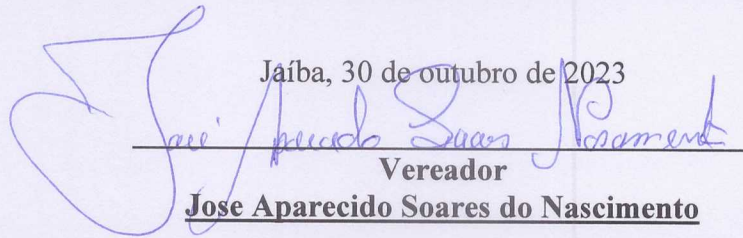 Jaíba, 30 de outubro de 2023
José Aparecido Soares Nascimento
Vereador
Jose Aparecido Soares do Nascimento